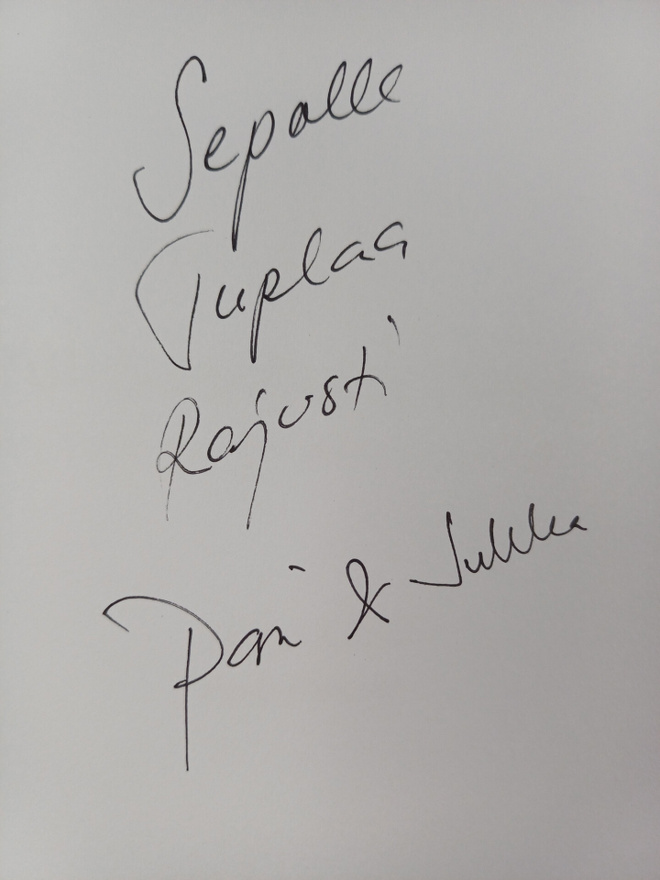 Sepolle
Tuplaa
Rajusti
Pani & Jukka